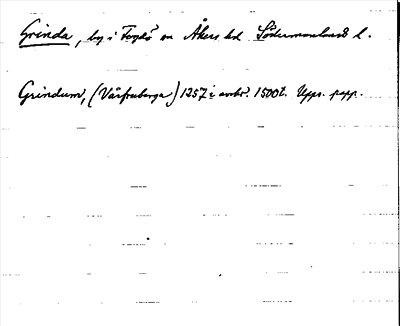 Grinda, by i Fogdö sn Åkers hd Södermanlands l.
Grindum, (Vårfruberga) 1257 i avskr. 1500t. Upps. papp.